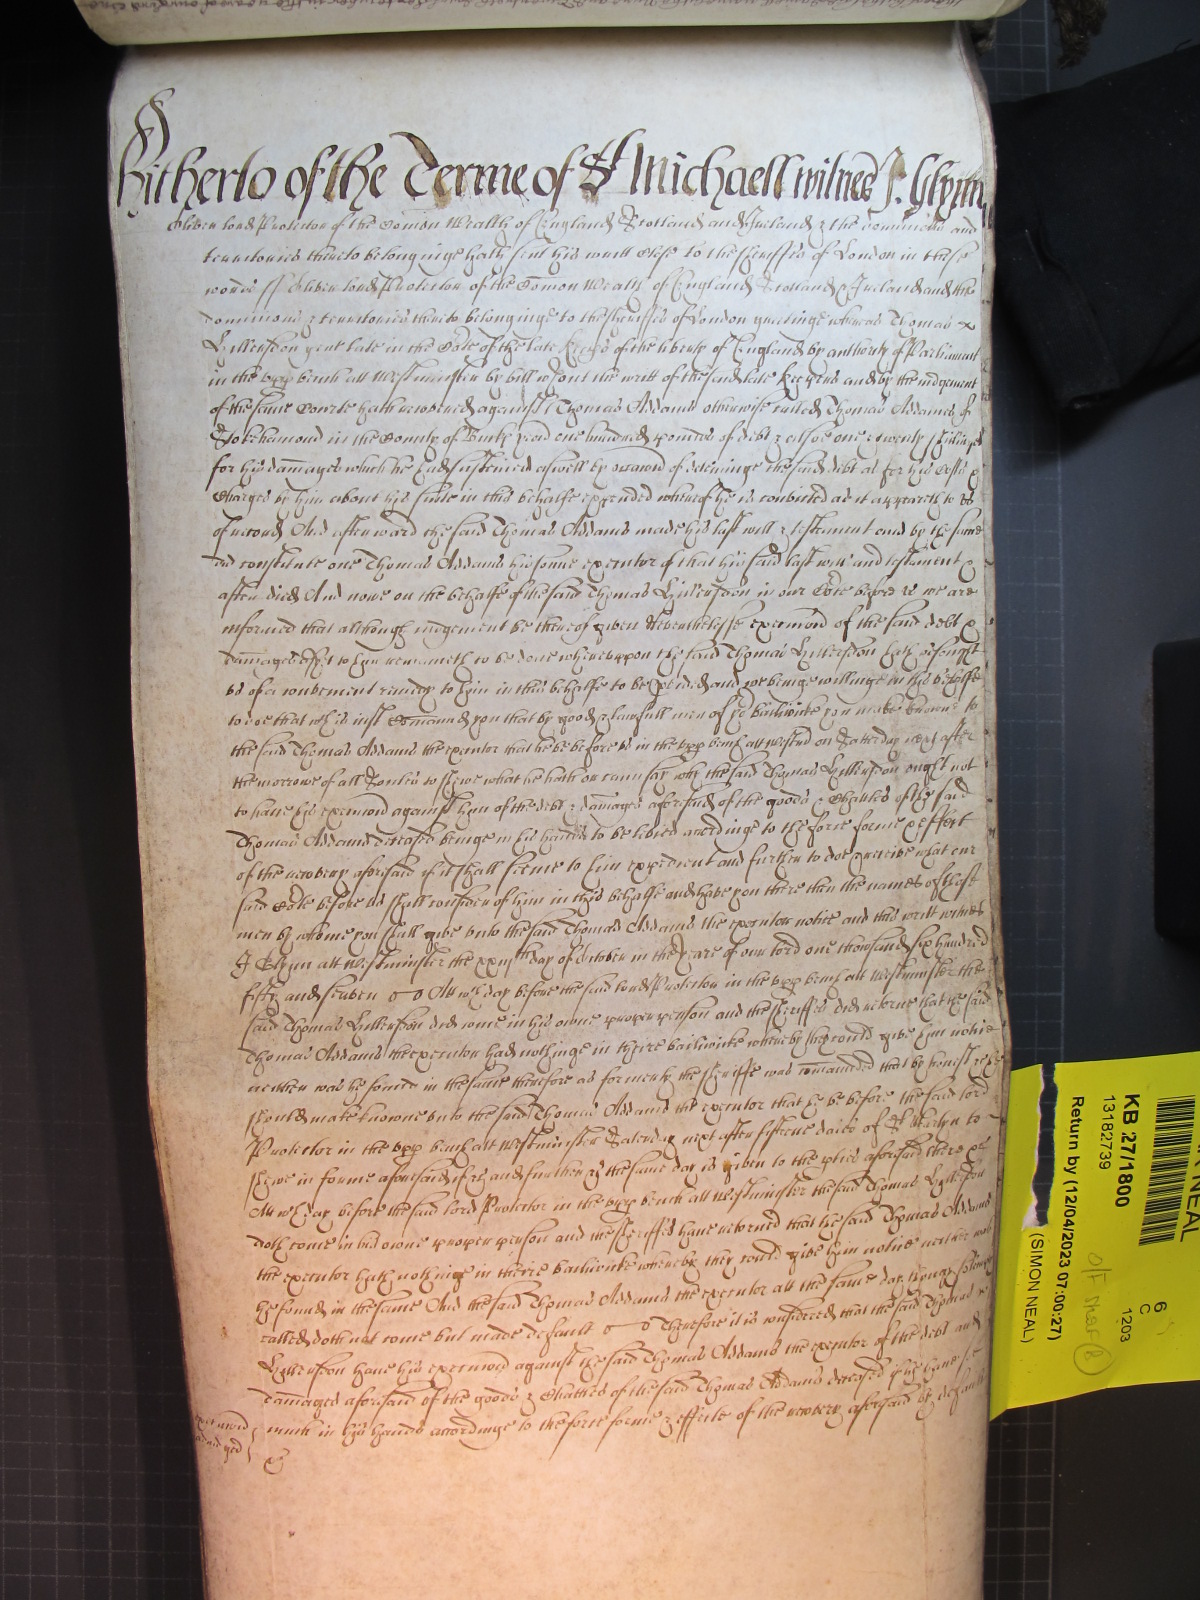 Hitherto of the Terme of St Michaell witnes J. Glynn
Oliver lord Protector of the Comon Wealth of England Scotland and Ireland & the dominions and
territories thereto belonginge hath sent his writt close to the Sheriffes of London in these
words ss Oliver lord Protector of the Comon Wealth of England Scotland & Ireland and the
dominions & territories thereto belonginge to the Sheriffes of London greetinge whereas Thomas
Lillersdon gent late in the Cort of the late keepers of the liberty of England by authority of Parliament
in the upp bench att Westminster by bill wthout the writt of the said late keepers and by the iudgement
of the same Courte hath recovered against Thomas Addams otherwise called Thomas Addames of
Stokehamond in the County of Bucks one hundred pounds of debt & alsoe one & twenty shillings
for his damages which he had susteined aswell by occacon of deteininge the said debt as for his Costs &
Charges by him about his suite in this behalfe expended whereof he is convicted as it appeareth to us
of record And afterward the said Thomas Addams made his last will & testament and by the same
did constitute one Thomas Addams his sonne executor of that his said last will and testament &
after died And nowe on the behalfe of the said Thomas Lillersdon in our Cort before us we are
informed that although iudgement be thereof given Neverthelesse execucion of the said debt &
damages yet to him remaineth to be done whereuppon the said Thomas Lillersdon hath besought
us of a convenient remedy to him in this behalfe to be pvided and we beinge willinge in this behalfe
to doe that wch is iust Comaund you that by good & lawfull men of yor bailiwicke you make knowne to
the said Thomas Addams the executor that he be before us in the upp bench att Westmr on Satterday next after
the morrowe of all Soules to shewe what he hath or can say why the said Thomas Lillersdon ought not
to have his execucion against him of the debt & damages aforesaid of the goods & Chattles of the said
Thomas Addams deceased beinge in his hands to be levied accordinge to the force forme & effect
of the recovery aforesaid if it shall seeme to him expedient and further to doe & receive what our
said Cort before us shall consider of him in this behalfe and have you there then the names of those
men by whome you shall give unto the said Thomas Addams the executor notice and this writt witnes
J Glynn att Westminster the day of October in the yeare of our lord one thousand six hundred
fifty and seaven Att wch day before the said lord Protector in the upp bench att Westminster the
said Thomas Lillersdon did come in his owne proper person and the sheriffes did retorne that the said
Thomas Addams the executor had nothinge in theire bailiwicke whereby they could give him notice
neither was he found in the same therefore as formerly the sheriffe was comaunded that by honest &c
should make knowne unto the said Thomas Addams the executor that he be before the said lord
Protector in the upp bench att Westminster Saterday next after fifteene daies of St Martyn to
shewe in forme aforesaid if &c and further &c the same day is given to the pties aforesaid there &c
Att wch day before the said lord Protector in the upp bench att Westminster the said Thomas Lillersdon
doth come in his owne proper person and the sheriffes have retorned that the said Thomas Addams
the executor hath nothinge in theire bailiwicke whereby they could give him notice neither was
he found in the same And the said Thomas Addams the executor att the same day beinge solemply
called doth not come but made default Therefore it is considered that the said Thomas
Lillersdon have his execucion against the said Thomas Addams the executor of the debt and
damages aforesaid of the goods & Chattles of the said Thomas Addams deceased if he have soe
much in his hands accordinge to the force forme & effecte of the recovery aforesaid by default
&c
execucion
adiudged
NEAL
KB 27/1800
13182739
Return by (12/04/2023 07:00:27)
(SIMON NEAL)
6
C
1203